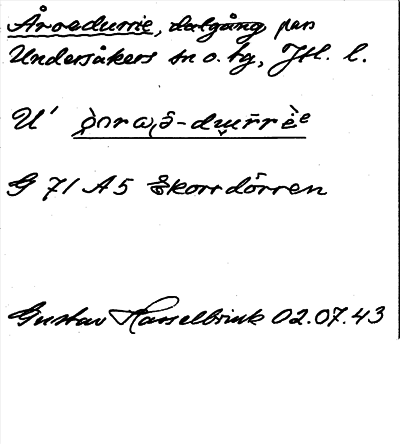 Åroedurrie, dalgång pas
Undersåkers sn o. tg, Jtl. l.
U'
G 71 A5 Skorrdörren
Gustav Hasselbrink 02.07.43